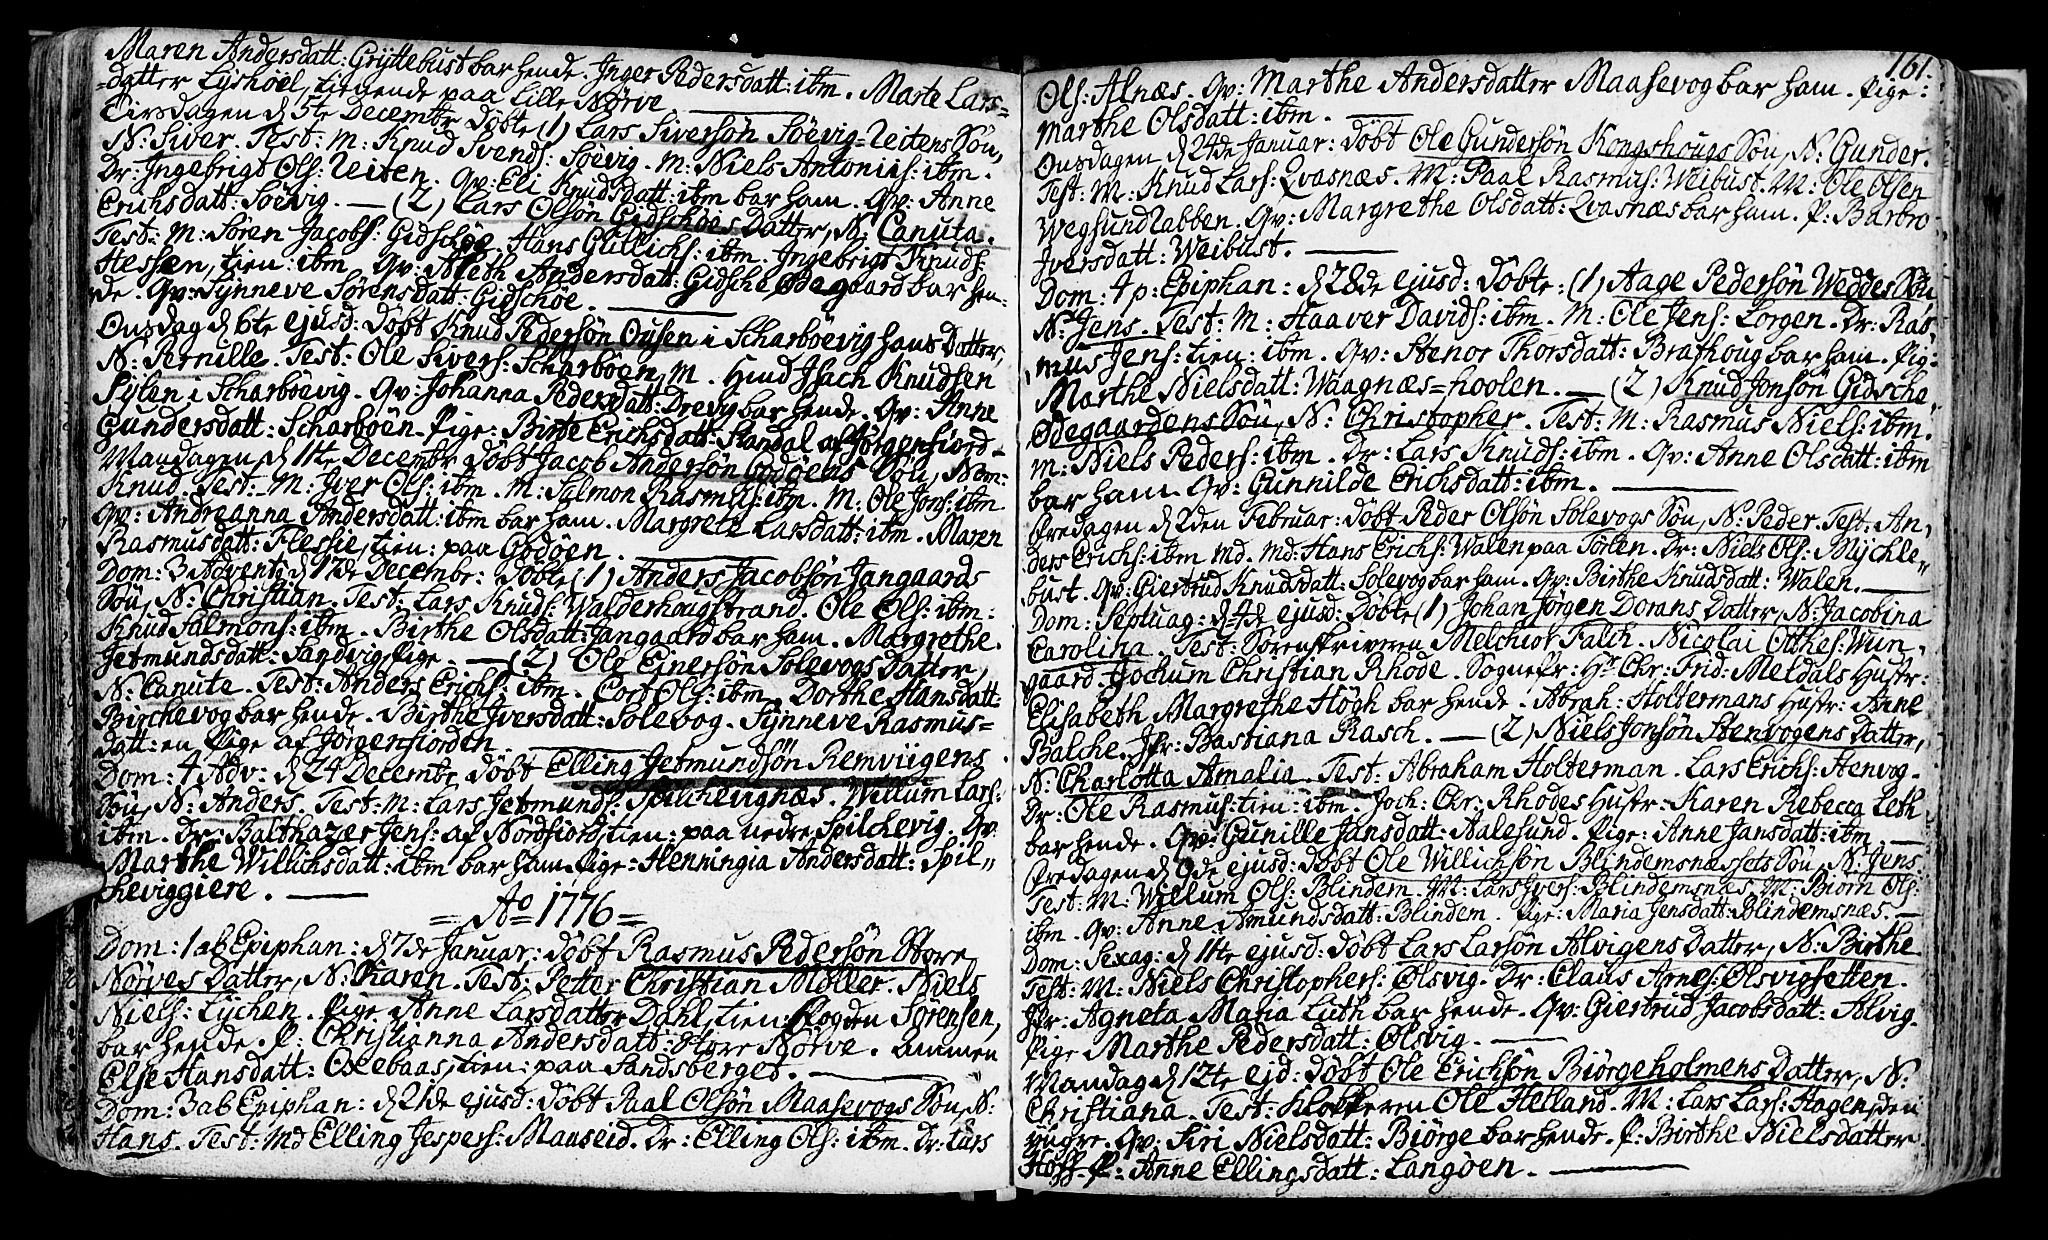 Maren Andersdatt: Gryttebust bar hende. Inger Pedersdatt: ibm. Marte Lars=
=datter Lyshoel, tienende paa Lille Nørve.
Tirsdagen d 5te Decembr døbte (1) Lars Siversøn Søevig=Leitens Søn,
N: Siver. Test: M: Knud Svends: Søevig. M: Niels Antonius: ibm.
Dr: Ingebrigt Ols: Leiten. Qv: Eli Knudsdatt: ibm bar ham. Qv: Anne
Erichsdatt: Søevig. — (2) Lars Olsøn Gidschøes Datter, N: Canuta.
Test: M: Søren Jacobs: Gidschøe. Hans Gullichs: ibm. Ingebrigt Knuds:
Hessen, tien: ibm. Qv: Aleth Andersdatt: Gidsche Ødegaard bar hen-
de. Qv: Synneve Sørensdatt: Gidschøe.
Onsdag d 6te ejusd: døbt Knud Pedersøn Ousen i Scharbøevig hans Datter,
N: Pernille. Test: Ole Sivers: Scharbøen, M. Hmd Isach Knudsen
Sylen i Scharbøevig. Qv: Johanna Pedersdatt: Drevy bar hende. Qv: Anne
Gundersdatt: Scharbøen. Pige: Birte Erichsdatt: Standal af Jørgenfiord.
Mandagen d 11te Decembr døbt Jacob Andersøn Godøens Søn, Nom:
Knud. Test: M: Iver Ols: ibm. M: Salmon Rasmus: ibm. M: Ole Jons: ibm
Qv: Andreanna Andersdatt: ibm bar ham. Margrete Larsdatt: ibm. Maren
Rasmusdatt: Flessie, tien: paa Godøen.
Dom: 3 Adventi d 17de Decembr: døbte (1) Anders Jacobsøn Jangaards
Søn, N: Christian. Test: Lars Knuds: Walderhougstrand. Ole Ols: ibm:
Knud Salmons: ibm. Birthe Olsdatt: Jangaard bar ham. Margrethe
Jetmundsdatt: Sandvig Pige. — (2) Ole Einersøn Solevogs Datter,
N: Canute. Test: Anders Erichs: ibm. Cort Ols: ibm. Dorthe Hansdatt:
Birchevog bar hende. Birthe Iversdatt: Solevog. Synneve Rasmus=
datt: en Pige af Jørgenfiorden.
Dom: 4 Adv: d 24 Decembr døbt Elling Jetmundsøn Remviigens
Søn, N: Anders. Test: M: Lars Jetmunds: Spilchevignæs. Willum Lars:
ibm. Dr: Balthazer Jens: af Nordfiord tien: paa nedre Spilchevig. Qv
Marthe Willichsdatt: ibm bar ham. Pige: Henningia Andersdatt: Spil-
cheviggiere.
= Ao 1776 =
Dom: 1 ab Epiphan: d 7de Januar: døbt Rasmus Pedersøn Store
Nørves Datter, N: Karen. Test: Petter Christian Møller. Niels
Niels: Lychen. Pige Anne Larsdatter Dahl, tien: Fogden Sørensen,
bar hende. P: Christianna Andersdatt: Store Nørve. Ammen
Else Hansdatt: Oxebaas, tien: paa Sandsberget.
Dom: 3 ab Epiphan: d 21de ejusd: døbt Paal Olsøn Maasevogs Søn, N:
Hans. Test: Md Elling Jespers: Mauseid. Dr: Elling Ols: ibm. Dr: Lars
161.
Ols: Alnæs. Qv: Marthe Andersdatter Maasevog bar ham. Pige:
Marthe Olsdatt: ibm.
Onsdagen d 24de Januar: døbt Ole Gundersøn Kongshougs Søn, N: Gunder.
Test: M: Knud Lars: Qvasnæs. M: Paal Rasmus: Weibust. M: Ole Olsen
Wegsundlabben. Qv: Margrethe Olsdatt: Qvasnæs bar ham. P: Barbro
Iversdatt: Weibust.
Dom: 4 p: Epiphan: d 28de ejusd: døbte: (1) Aage Pedersøn Weddes Søn
N: Jens. Test: M: Haaver Davids: ibm. M: Ole Jens: Lorgen. Dr: Ras-
mus Jens: tien: ibm. Qv: Stenor Thorsdatt: Brathoug bar ham. Pig:
Marthe Nielsdatt: Waagnæs=hoolen. — (2) Knud Jonsøn Gidsche
Ødegaardens Søn, N: Christopher. Test: M: Rasmus Niels: ibm.
M: Niels Peders: ibm. Dr: Lars Knuds: ibm. Qv: Anne Olsdatt: ibm
bar ham. Qv: Gunnilde Erichsdatt: ibm.
Fredagen d 2den Februar: døbt Peder Olsøn Solevogs Søn, N: Peder. Test: An-
ders Erichs: ibm Md. Md: Hans Erichs: Walen paa Førlen. Dr: Niels Ols: Mychle-
bust. Qv: Giertrud Knudsdatt: Solevog bar ham. Qv: Birthe Knudsdatt: Walen.
Dom: Septuag: d 4de ejusd: døbte (1) Johan Jørgen Dorans Datter, N: Jacobina
Carolina. Test: Sorenskriveren Melchior Falch. Nicolai Otthes: Wun-
gaard. Jochum Christian Rhode. Sognepr: Hr Chr: Frid: Meldals Hustr:
Elisabeth Margrethe Høgh bar hende. Abrah: Holtermans Hustr: Anne
Balche. Jfr: Bastiana Rasch. — (2) Niels Jonsøn Stenvogens Datter,
N: Charlotta Amalia. Test: Abraham Holterman. Lars Erichs: Stenvog.
Dr: Ole Rasmus: tien: ibm. Joch: Chr: Rhodes Hustr: Karen Rebecca Leth
bar hende. Qv: Gunille Jansdatt: Aalesund. Pige: Anne Jansdatt: ibm.
Fredagen d 9de ejusd: døbt Ole Willichsøn Blindemsnæssets Søn, N: Jens.
Test: M: Willum Ols: Blindem. M: Lars Ivers: Blindemsnæs. M: Biørn Ols:
ibm. Qv: Anne Amundsdatt: Blindem. Pige: Maria Jensdatt: Blindemsnæs.
Dom: Sexag: d 11te ejusd: døbt Lars Larsøn Alvigens Datter, N: Birthe
Test: M: Niels Christophers: Ølsvig. Dr: Claus Arnes: Ølsvigsetten.
Jfr: Agneta Maria Luth bar hende. Qv: Giertrud Jacobsdatt: Alvig.
Pige Marthe Pedersdatt: Ølsvig.
Mandag d 12te ejd: døbt Ole Erichsøn Biørgeholmens Datter, N:
Christiana. Test: Klokkeren Ole Hetland. M: Lars Lars: Hagen, den
yngre. Qv: Siri Nielsdatt: Biørge bar hende. P: Birthe Nielsdatter
Hoff. P: Anne Ellingsdatt: Langøen.